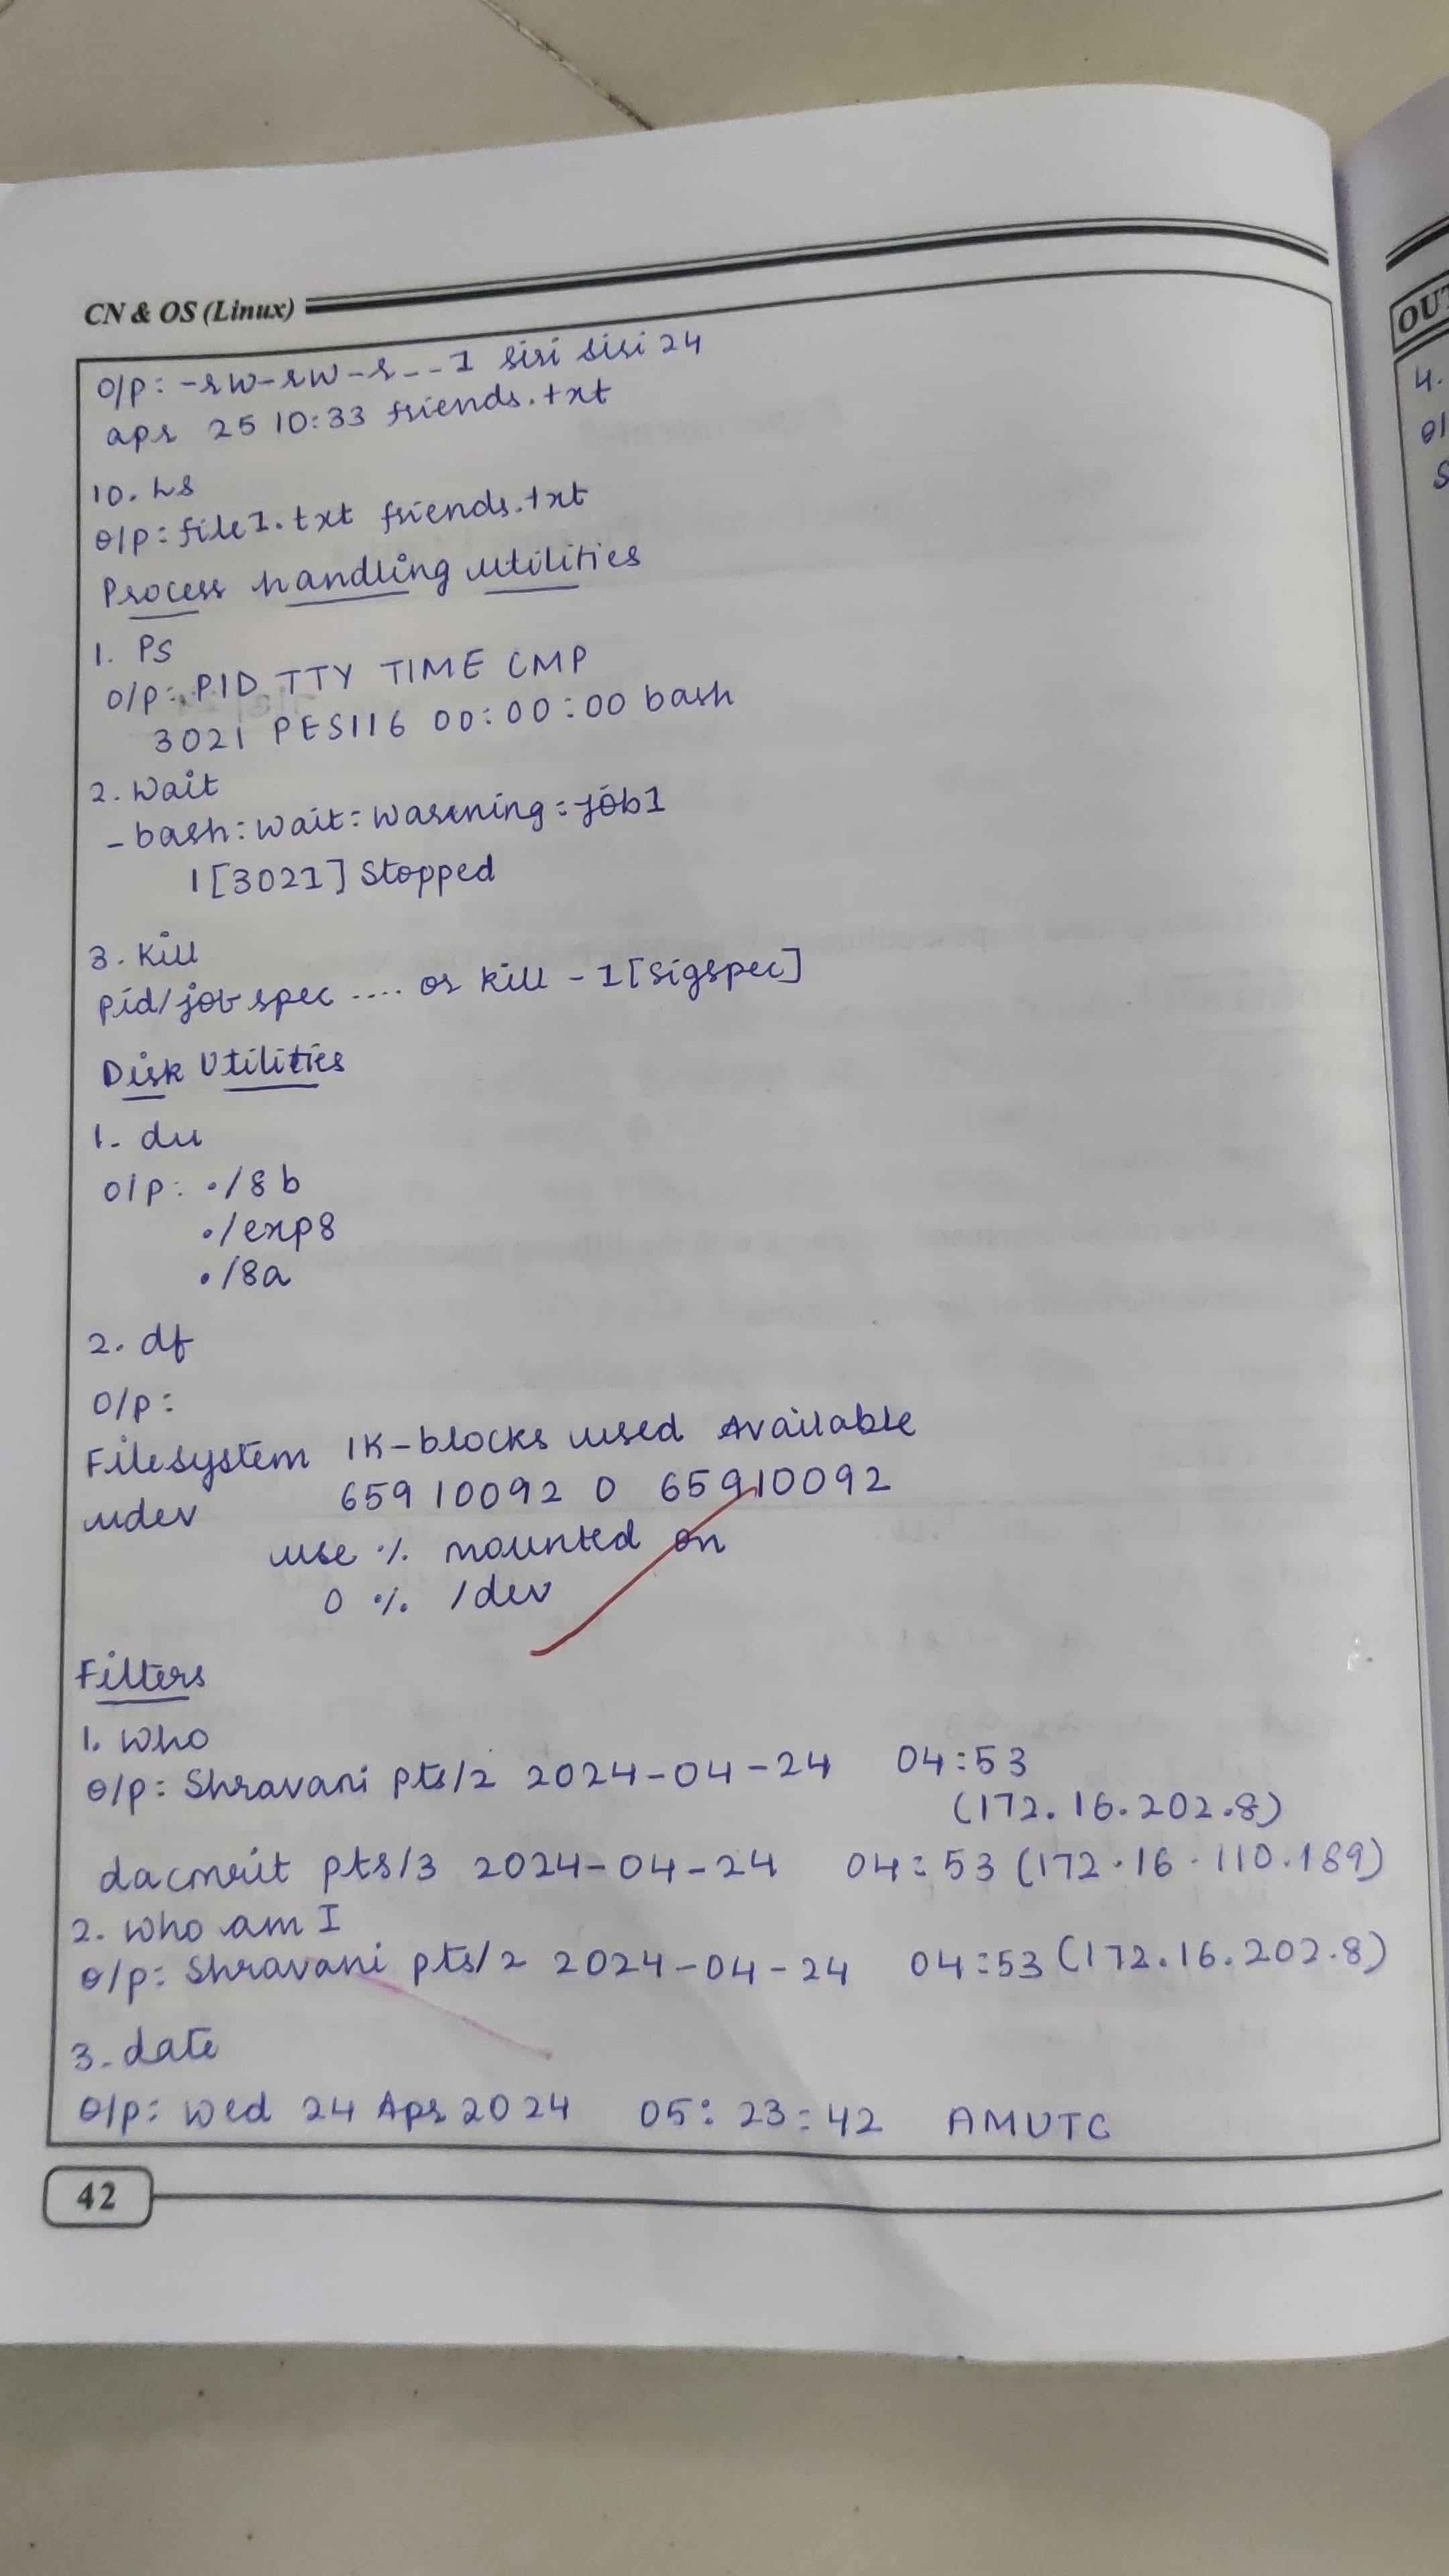 CN & OS (Linux)
O/p: -rw-rw-r--1 siri siri 24
apr 25 10:33 friends.txt
10. Ls
O/p: file1.txt friends.txt
Process handling utilities
1. PS
O/p: PID TTY TIME CMP
3021 PES116 00:00:00 bash
2. Wait
-bash: wait: warning: job1
1[3021] Stopped
3. Kill
pid/job spec .... or kill -1[sigspec]
Disk Utilities
1. du
O/p: ./8b
./exp8
./8a
2. df
O/p:
Filesystem 1K-blocks used Available
udev 65910092 0 65910092
use % mounted on
0 % /dev
Filters
1. who
O/p: Shravani pts/2 2024-04-24 04:53
(172.16.202.8)
dacmrit pts/3 2024-04-24 04:53 (172.16.110.189)
2. who am I
O/p: Shravani pts/2 2024-04-24 04:53 (172.16.202.8)
3. date
O/p: Wed 24 Apr 2024 05:23:42 AMUTC
42
OUT
4.
O/
S